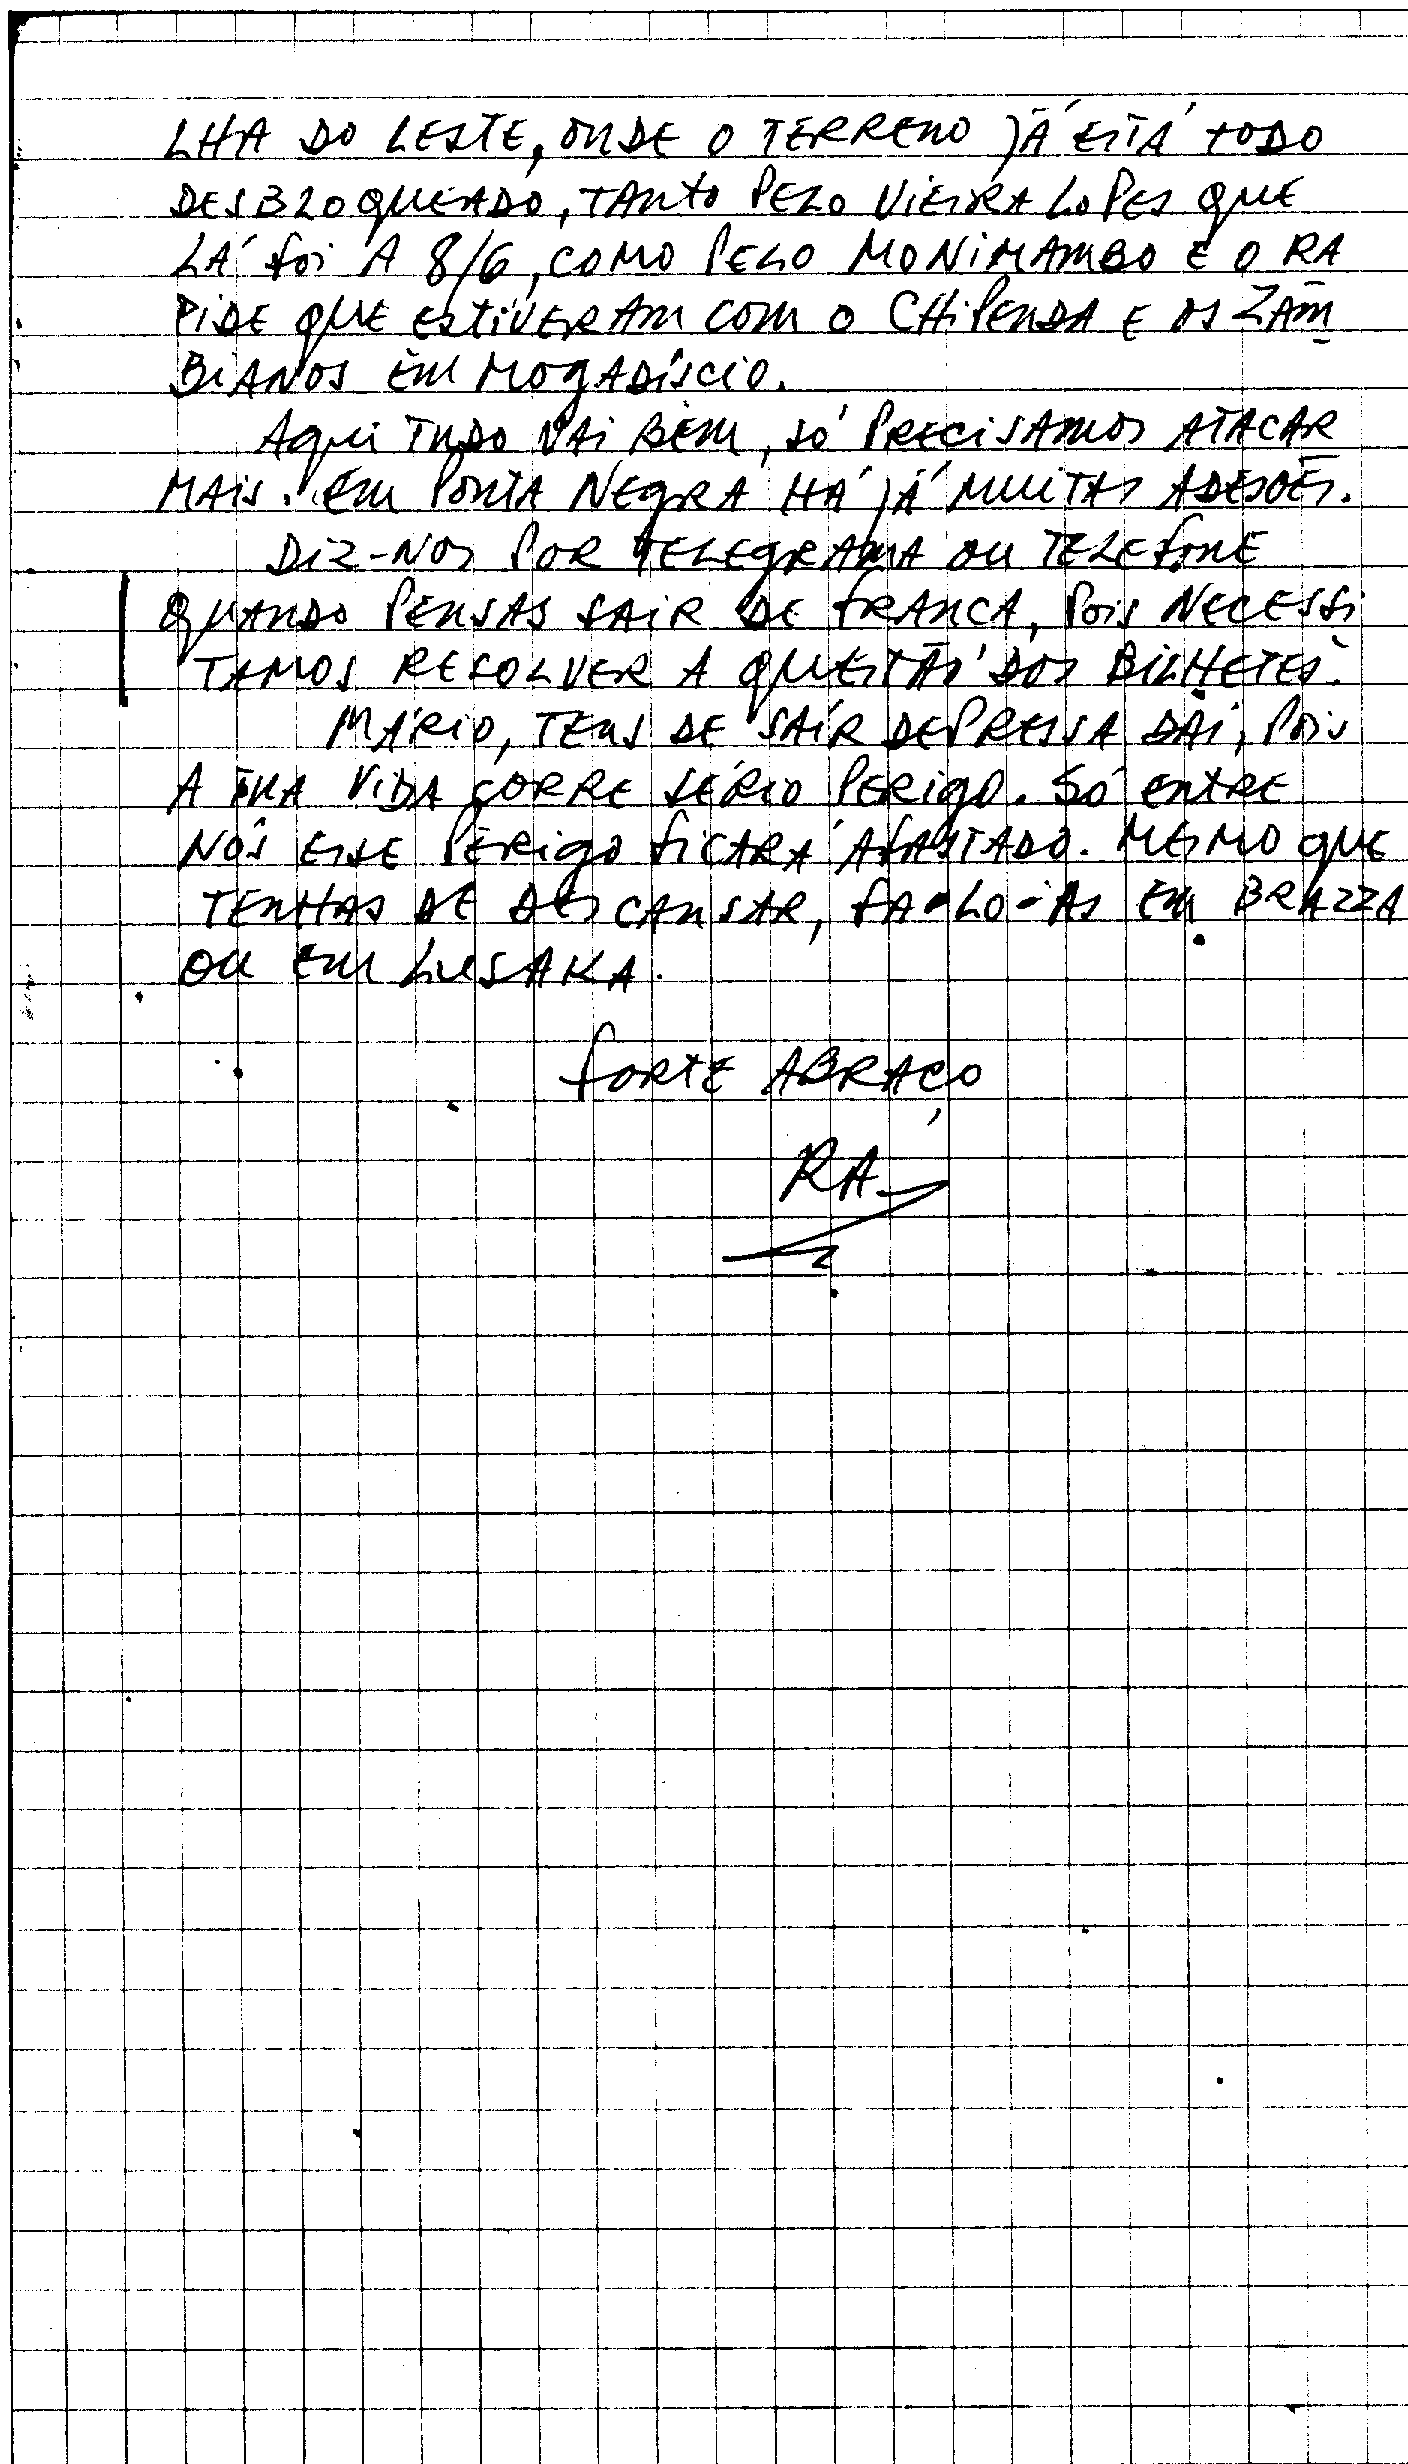 LHA DO LESTE, ONDE O TERRENO JÁ ESTÁ TODO
DESBLOQUEADO, TANTO PELO VIEIRA LOPES QUE
LÁ FOI A 8/6, COMO PELO MONIMAMBO E O RA
PIDE QUE ESTIVERAM COM O CHIPENDA E OS ZAM
BIANOS EM MOGADÍSCIO.
AQUI TUDO VAI BEM, SÓ PRECISAMOS ATACAR
MAIS. EM PONTA NEGRA HÁ JÁ MUITAS ADESÕES.
DIZ-NOS POR TELEGRAMA OU TELEFONE
QUANDO PENSAS SAIR DE FRANCA, POIS NECESSI
TAMOS RESOLVER A QUESTÃO DOS BILHETES.
MÁRIO, TENS DE SAÍR DEPRESSA DAÍ, POIS
A TUA VIDA CORRE SÉRIO PERIGO. SÓ ENTRE
NÓS ESSE PERIGO FICARÁ AFASTADO. MESMO QUE
TENHAS DE DESCANSAR, FA-LO-ÁS EM BRAZZA
OU EM LUSAKA.
FORTE ABRAÇO
RA